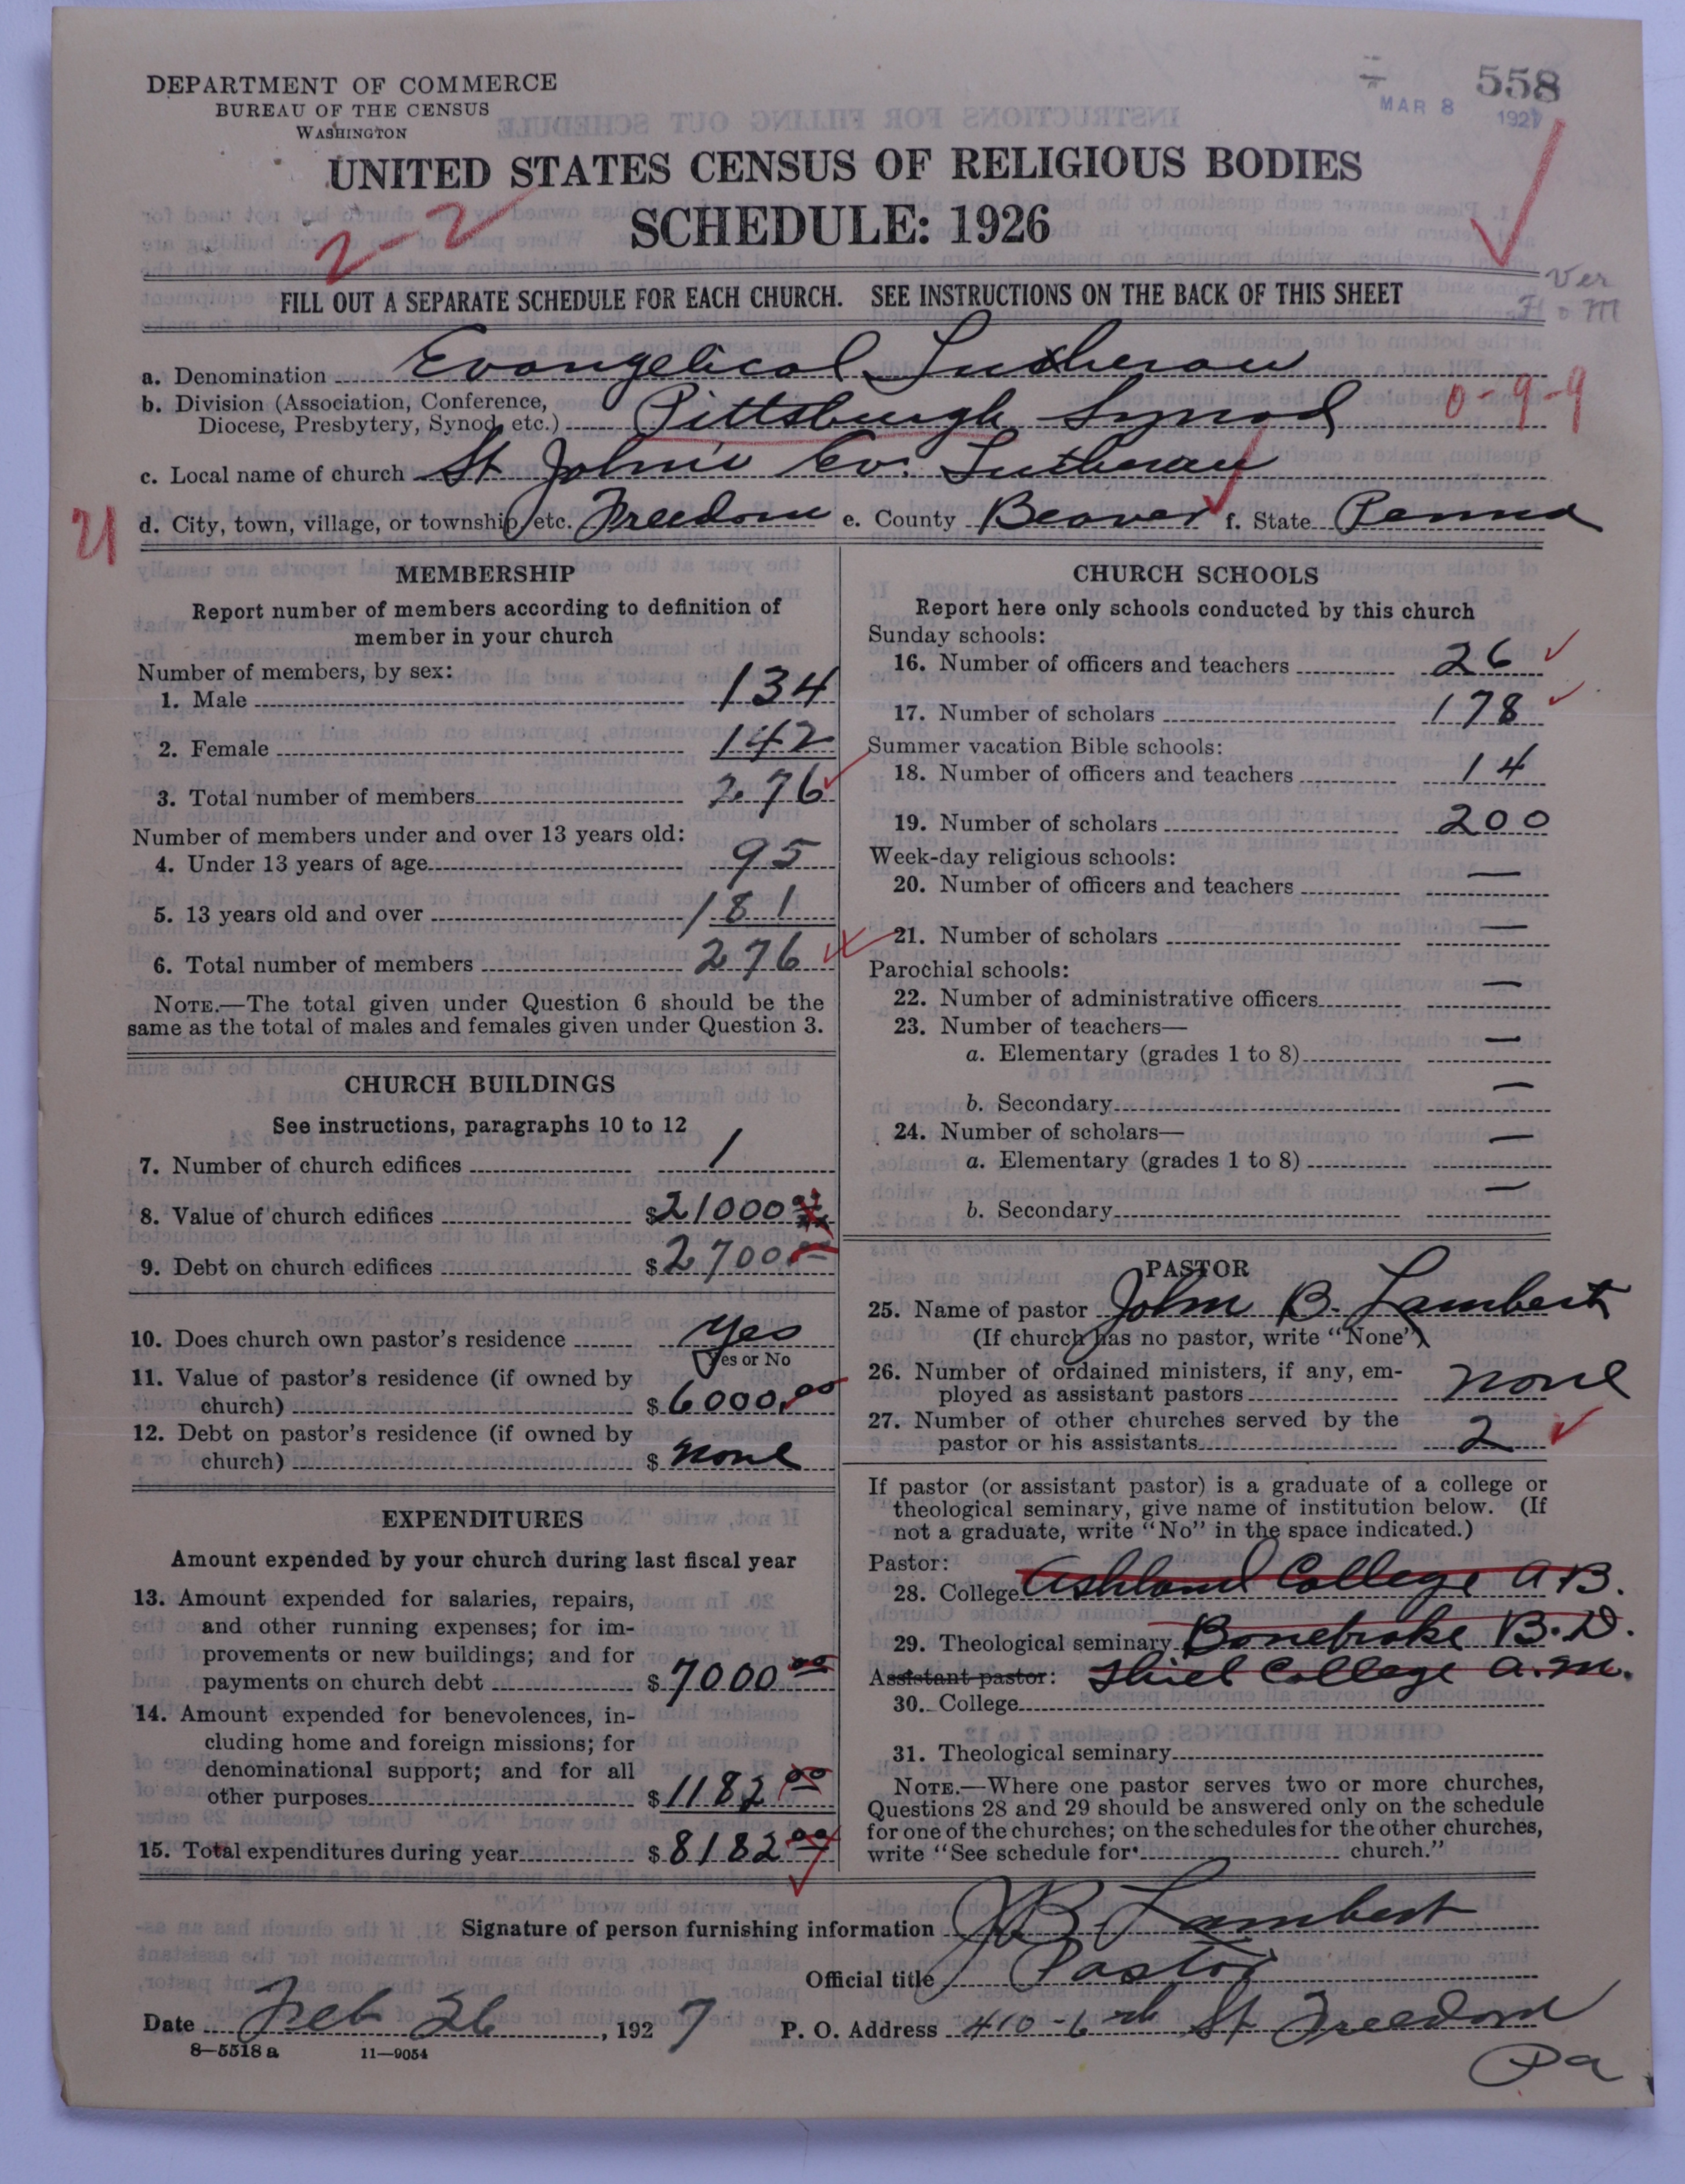 DEPARTMENT OF COMMERCE
BUREAU OF THE CENSUS
WASHINGTON
558
MAR 8 1927
UNITED STATES CENSUS OF RELIGIOUS BODIES
SCHEDULE: 1926
2-2
FILL OUT A SEPARATE SCHEDULE FOR EACH CHURCH. SEE INSTRUCTIONS ON THE BACK OF THIS SHEET
Ver
a. Denomination Evangelical Lutheran
0-9-9
b. Division (Association, Conference,
Diocese, Presbytery, Synod, etc.) Pittsburgh Synod
c. Local name of church St John's Ev. Lutheran
21
d. City, town, village, or township, etc. Freedom e. County Beaver f. State Penna
MEMBERSHIP
Report number of members according to definition of
member in your church
Number of members, by sex:
1. Male 134
2. Female 142
3. Total number of members 276
Number of members under and over 13 years old:
4. Under 13 years of age 95
5. 13 years old and over 181
6. Total number of members 276
NOTE.—The total given under Question 6 should be the
same as the total of males and females given under Question 3.
CHURCH BUILDINGS
See instructions, paragraphs 10 to 12
7. Number of church edifices 1
8. Value of church edifices $21000
9. Debt on church edifices $2700.00
10. Does church own pastor's residence Yes
Yes or No
11. Value of pastor's residence (if owned by
church) $6000.00
12. Debt on pastor's residence (if owned by
church) $none
EXPENDITURES
Amount expended by your church during last fiscal year
13. Amount expended for salaries, repairs,
and other running expenses; for im-
provements or new buildings; and for
payments on church debt $7000 00
14. Amount expended for benevolences, in-
cluding home and foreign missions; for
denominational support; and for all
other purposes $1182 00
15. Total expenditures during year $8182 00
CHURCH SCHOOLS
Report here only schools conducted by this church
Sunday schools:
16. Number of officers and teachers 26
17. Number of scholars 178
Summer vacation Bible schools:
18. Number of officers and teachers 14
19. Number of scholars 200
Week-day religious schools:
20. Number of officers and teachers —
21. Number of scholars —
Parochial schools:
22. Number of administrative officers —
23. Number of teachers—
a. Elementary (grades 1 to 8) —
b. Secondary —
24. Number of scholars—
a. Elementary (grades 1 to 8) —
b. Secondary —
PASTOR
25. Name of pastor John B. Lambert
(If church has no pastor, write "None")
26. Number of ordained ministers, if any, em-
ployed as assistant pastors none
27. Number of other churches served by the
pastor or his assistants 2
If pastor (or assistant pastor) is a graduate of a college or
theological seminary, give name of institution below. (If
not a graduate, write "No" in the space indicated.)
Pastor:
28. College Ashland College A B.
29. Theological seminary Bonebrake B. D.
Assistant pastor: Thiel College A. M.
30. College
31. Theological seminary
NOTE.—Where one pastor serves two or more churches,
Questions 28 and 29 should be answered only on the schedule
for one of the churches; on the schedules for the other churches,
write "See schedule for church."
Signature of person furnishing information JB Lambert
Official title Pastor
Date Feb 26, 1927 P. O. Address 410-6th St Freedom
Pa
8—5518 a 11—9054